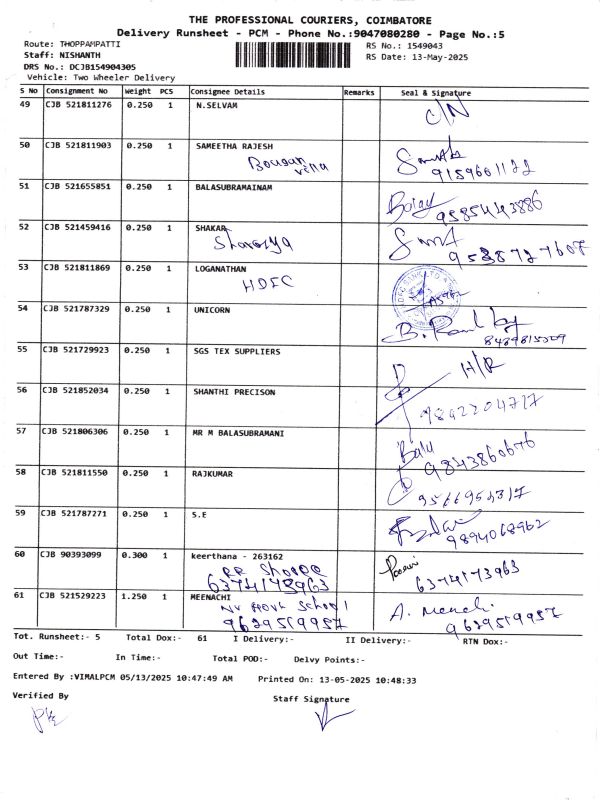 THE PROFESSIONAL COURIERS, COIMBATORE
Delivery Runsheet - PCM - Phone No.:9047080280 - Page No.:5
Route: THOPPAMPATTI
RS No.: 1549043
Staff: NISHANTH
RS Date: 13-May-2025
DRS No.: DCJB154904305
Vehicle: Two Wheeler Delivery
S No Consignment No Weight PCS Consignee Details Remarks Seal & Signature
49 CJB 521811276 0.250 1 N.SELVAM C/N
50 CJB 521811903 0.250 1 SAMEETHA RAJESH
9159601122
51 CJB 521655851 0.250 1 BALASUBRAMAINAM Balaj
9585443886
52 CJB 521459416 0.250 1 SHAKAR
53 CJB 521811869 0.250 1 LOGANATHAN
HDFC
54 CJB 521787329 0.250 1 UNICORN
55 CJB 521729923 0.250 1 SGS TEX SUPPLIERS H/R
56 CJB 521852034 0.250 1 SHANTHI PRECISON
9842204717
57 CJB 521806306 0.250 1 MR M BALASUBRAMANI Balu
9843860676
58 CJB 521811550 0.250 1 RAJKUMAR
59 CJB 521787271 0.250 1 S.E
9894068962
60 CJB 90393099 0.300 1 keerthana - 263162
6374173963 6374173963
61 CJB 521529223 1.250 1 MEENACHI A.
School
9629519957 9629519957
Tot. Runsheet:- 5 Total Dox:- 61 I Delivery:- II Delivery:- RTN Dox:-
Out Time:- In Time:- Total POD:- Delvy Points:-
Entered By :VIMALPCM 05/13/2025 10:47:49 AM Printed On: 13-05-2025 10:48:33
Verified By Staff Signature